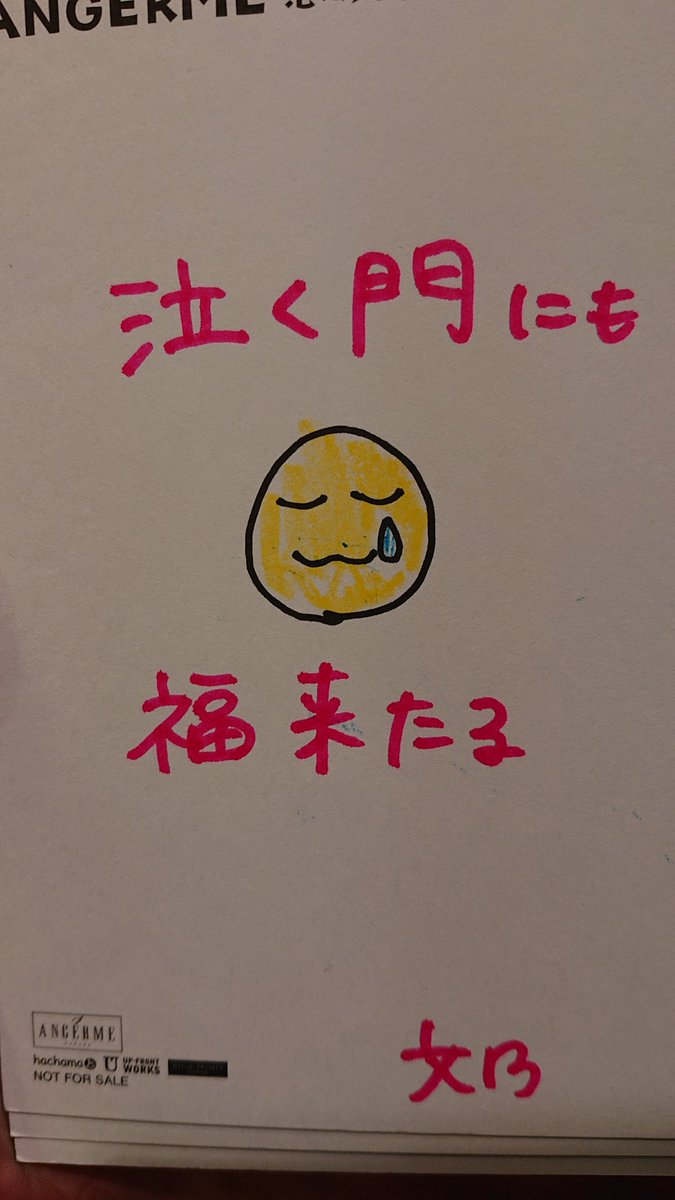 ANGERME
泣く門にも
福来たる
ANGERME
hachama
UP-FRONT
WORKS
NOT FOR SALE